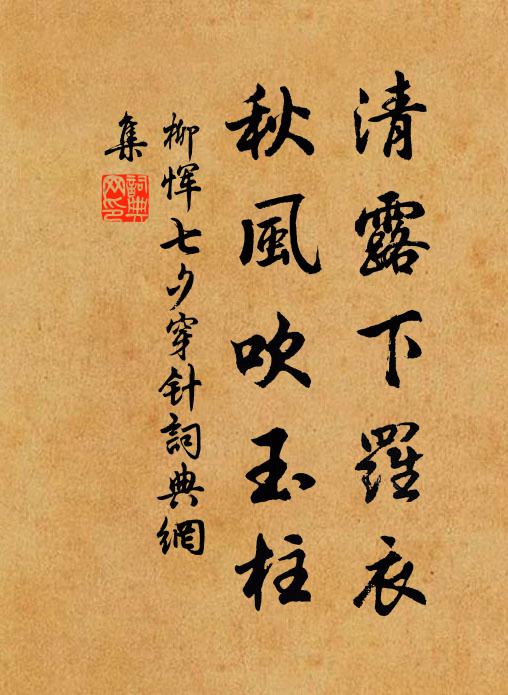 清露下羅衣
秋風吹玉柱
柳惲七夕穿针詞典網
集
詞典
网印